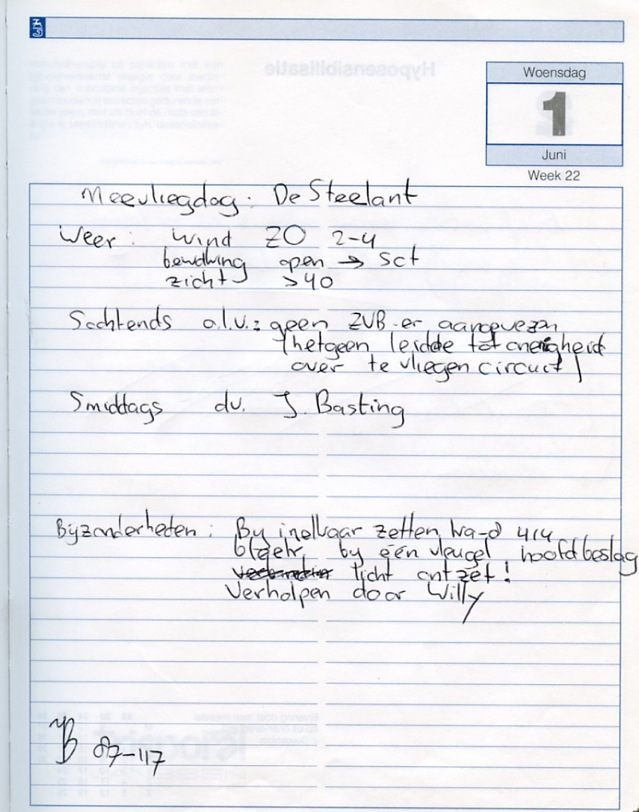 Woensdag
1
Juni
Week 22
Meevliegdag: De Steelant
Weer: Wind ZO 2-4
bewolking open → sct
zicht >40
Sochtends o.l.v.: geen ZVB-er aanwezen
(hetgeen leidde tot onenigheid
over te vliegen circuit)
Smiddags dv. J. Basting
Bijzonderheden: By inelkaar zetten, Ka-8 414
by één vleugel hoofdbeslag
licht ontzet!
Verholpen door Willy
87-117